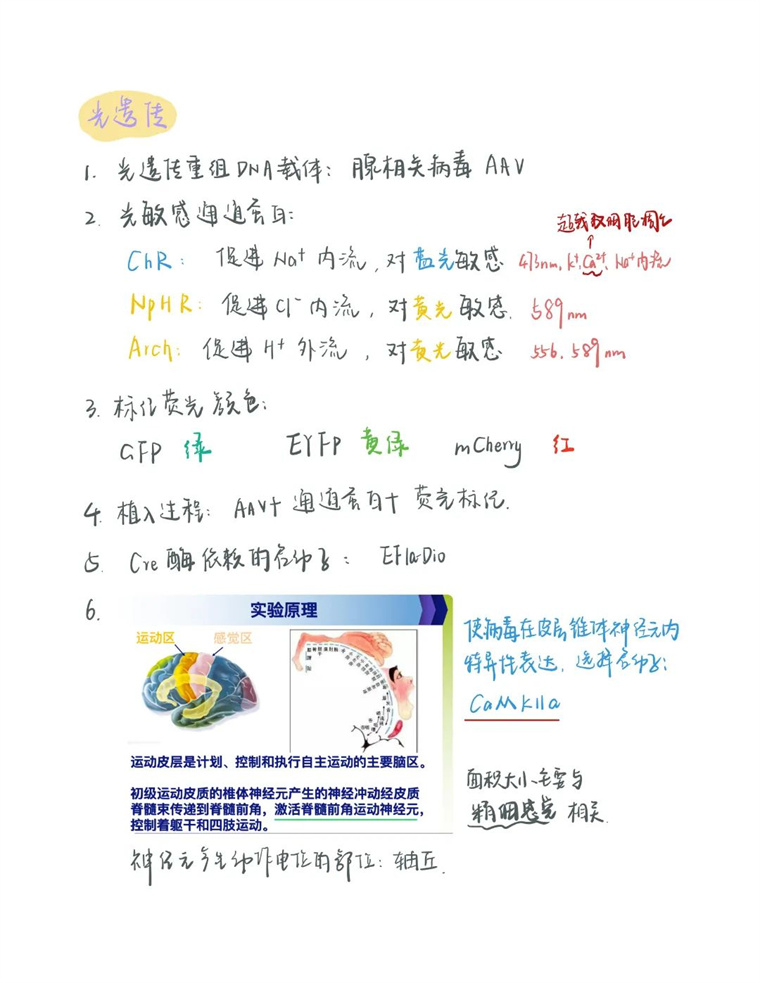 光遗传
1. 光遗传重组DNA载体：腺相关病毒 AAV
2. 光敏感通道蛋白：
ChR：促进Na⁺内流，对蓝光敏感 473nm，K⁺、Ca²⁺、Na⁺内流
NpHR：促进Cl⁻内流，对黄光敏感. 589nm
Arch：促进H⁺外流，对黄光敏感 556、589nm
3. 标记荧光颜色：
GFP 绿 EYFP 黄绿 mCherry 红
4. 植入过程：AAV+通道蛋白+荧光标记.
5. Cre酶依赖的启动子：EF1aDio
6.
实验原理
运动区 感觉区
运动皮层是计划、控制和执行自主运动的主要脑区。
初级运动皮质的椎体神经元产生的神经冲动经皮质
脊髓束传递到脊髓前角，激活脊髓前角运动神经元，
控制着躯干和四肢运动。
使病毒在皮层锥体神经元内
特异性表达，选择启动子：
CaMKIIa
面积大小主要与
精细感觉 相关.
神经元产生动作电位的部位：轴丘.